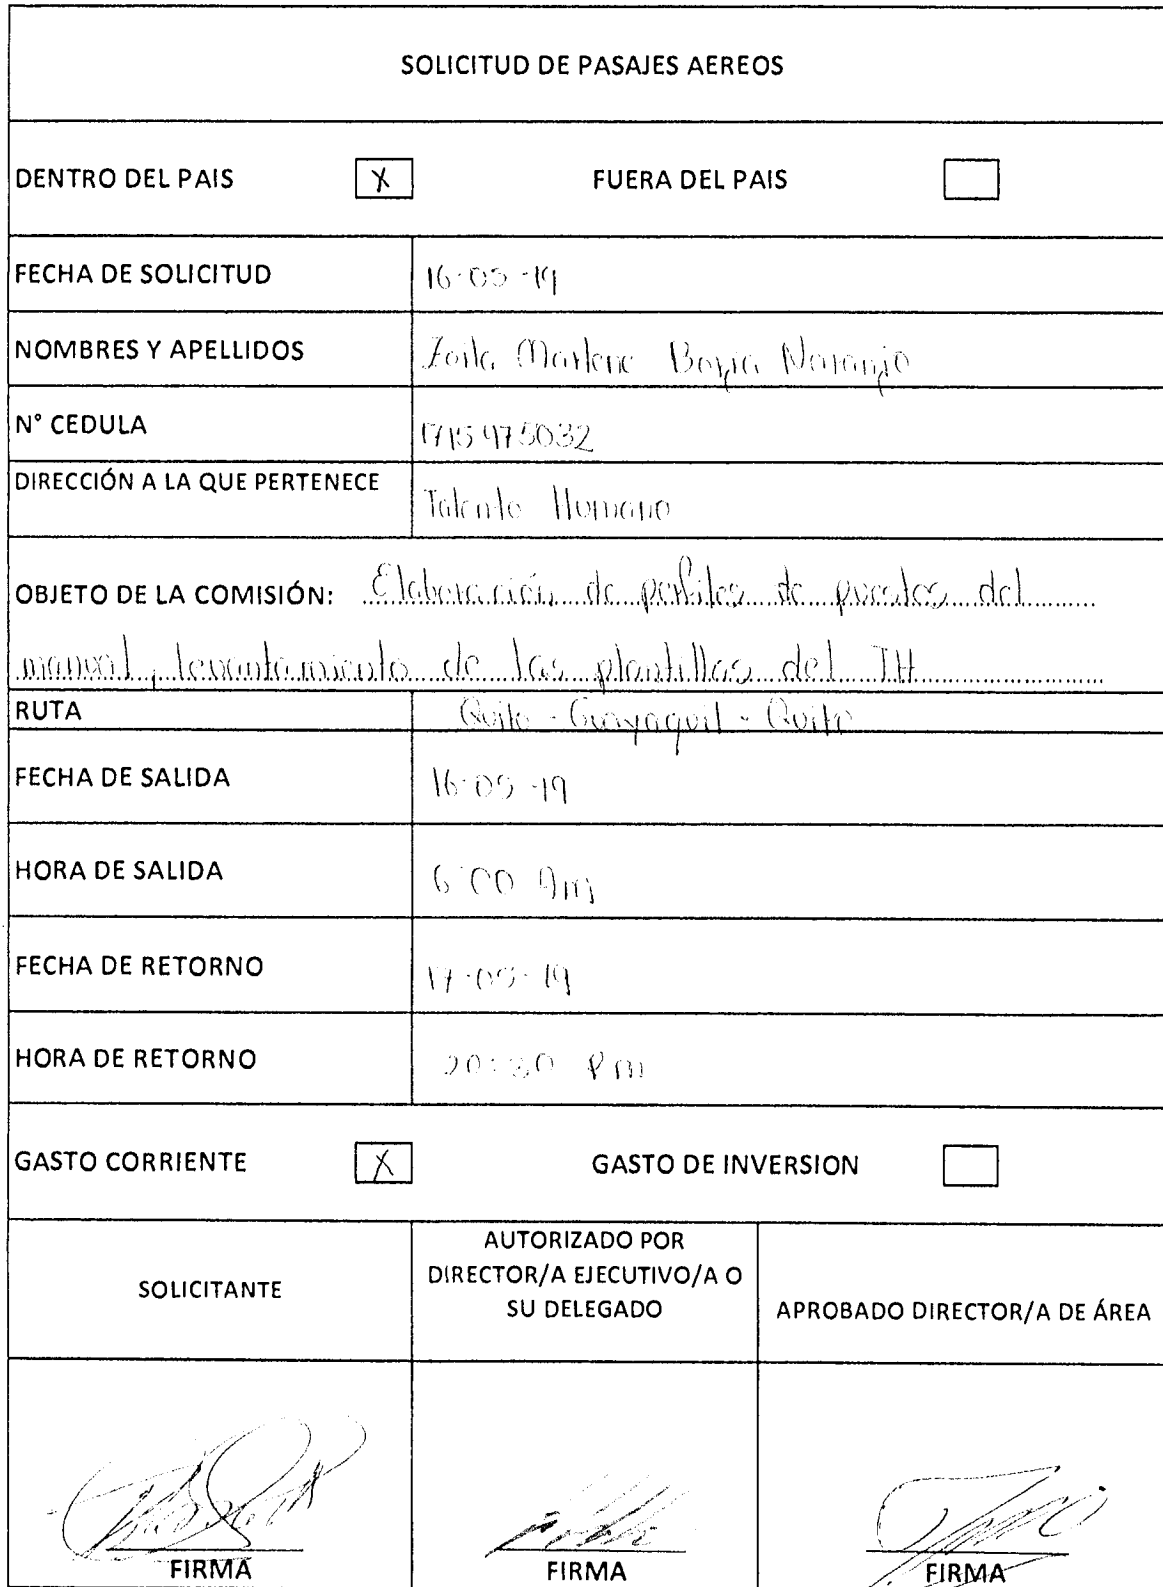 SOLICITUD DE PASAJES AEREOS
DENTRO DEL PAIS X FUERA DEL PAIS
FECHA DE SOLICITUD 16-05-19
NOMBRES Y APELLIDOS Zoila Marlene Borja Naranjo
N° CEDULA 1715975032
DIRECCIÓN A LA QUE PERTENECE Talento Humano
OBJETO DE LA COMISIÓN: Elaboración de perfiles de puestos del
manual, levantamiento de las plantillas del TH
RUTA Quito - Guayaquil - Quito
FECHA DE SALIDA 16-05-19
HORA DE SALIDA 6:00 Am
FECHA DE RETORNO 17-05-19
HORA DE RETORNO 20:30 Pm
GASTO CORRIENTE X GASTO DE INVERSION
SOLICITANTE
AUTORIZADO POR
DIRECTOR/A EJECUTIVO/A O
SU DELEGADO
APROBADO DIRECTOR/A DE ÁREA
FIRMA FIRMA FIRMA